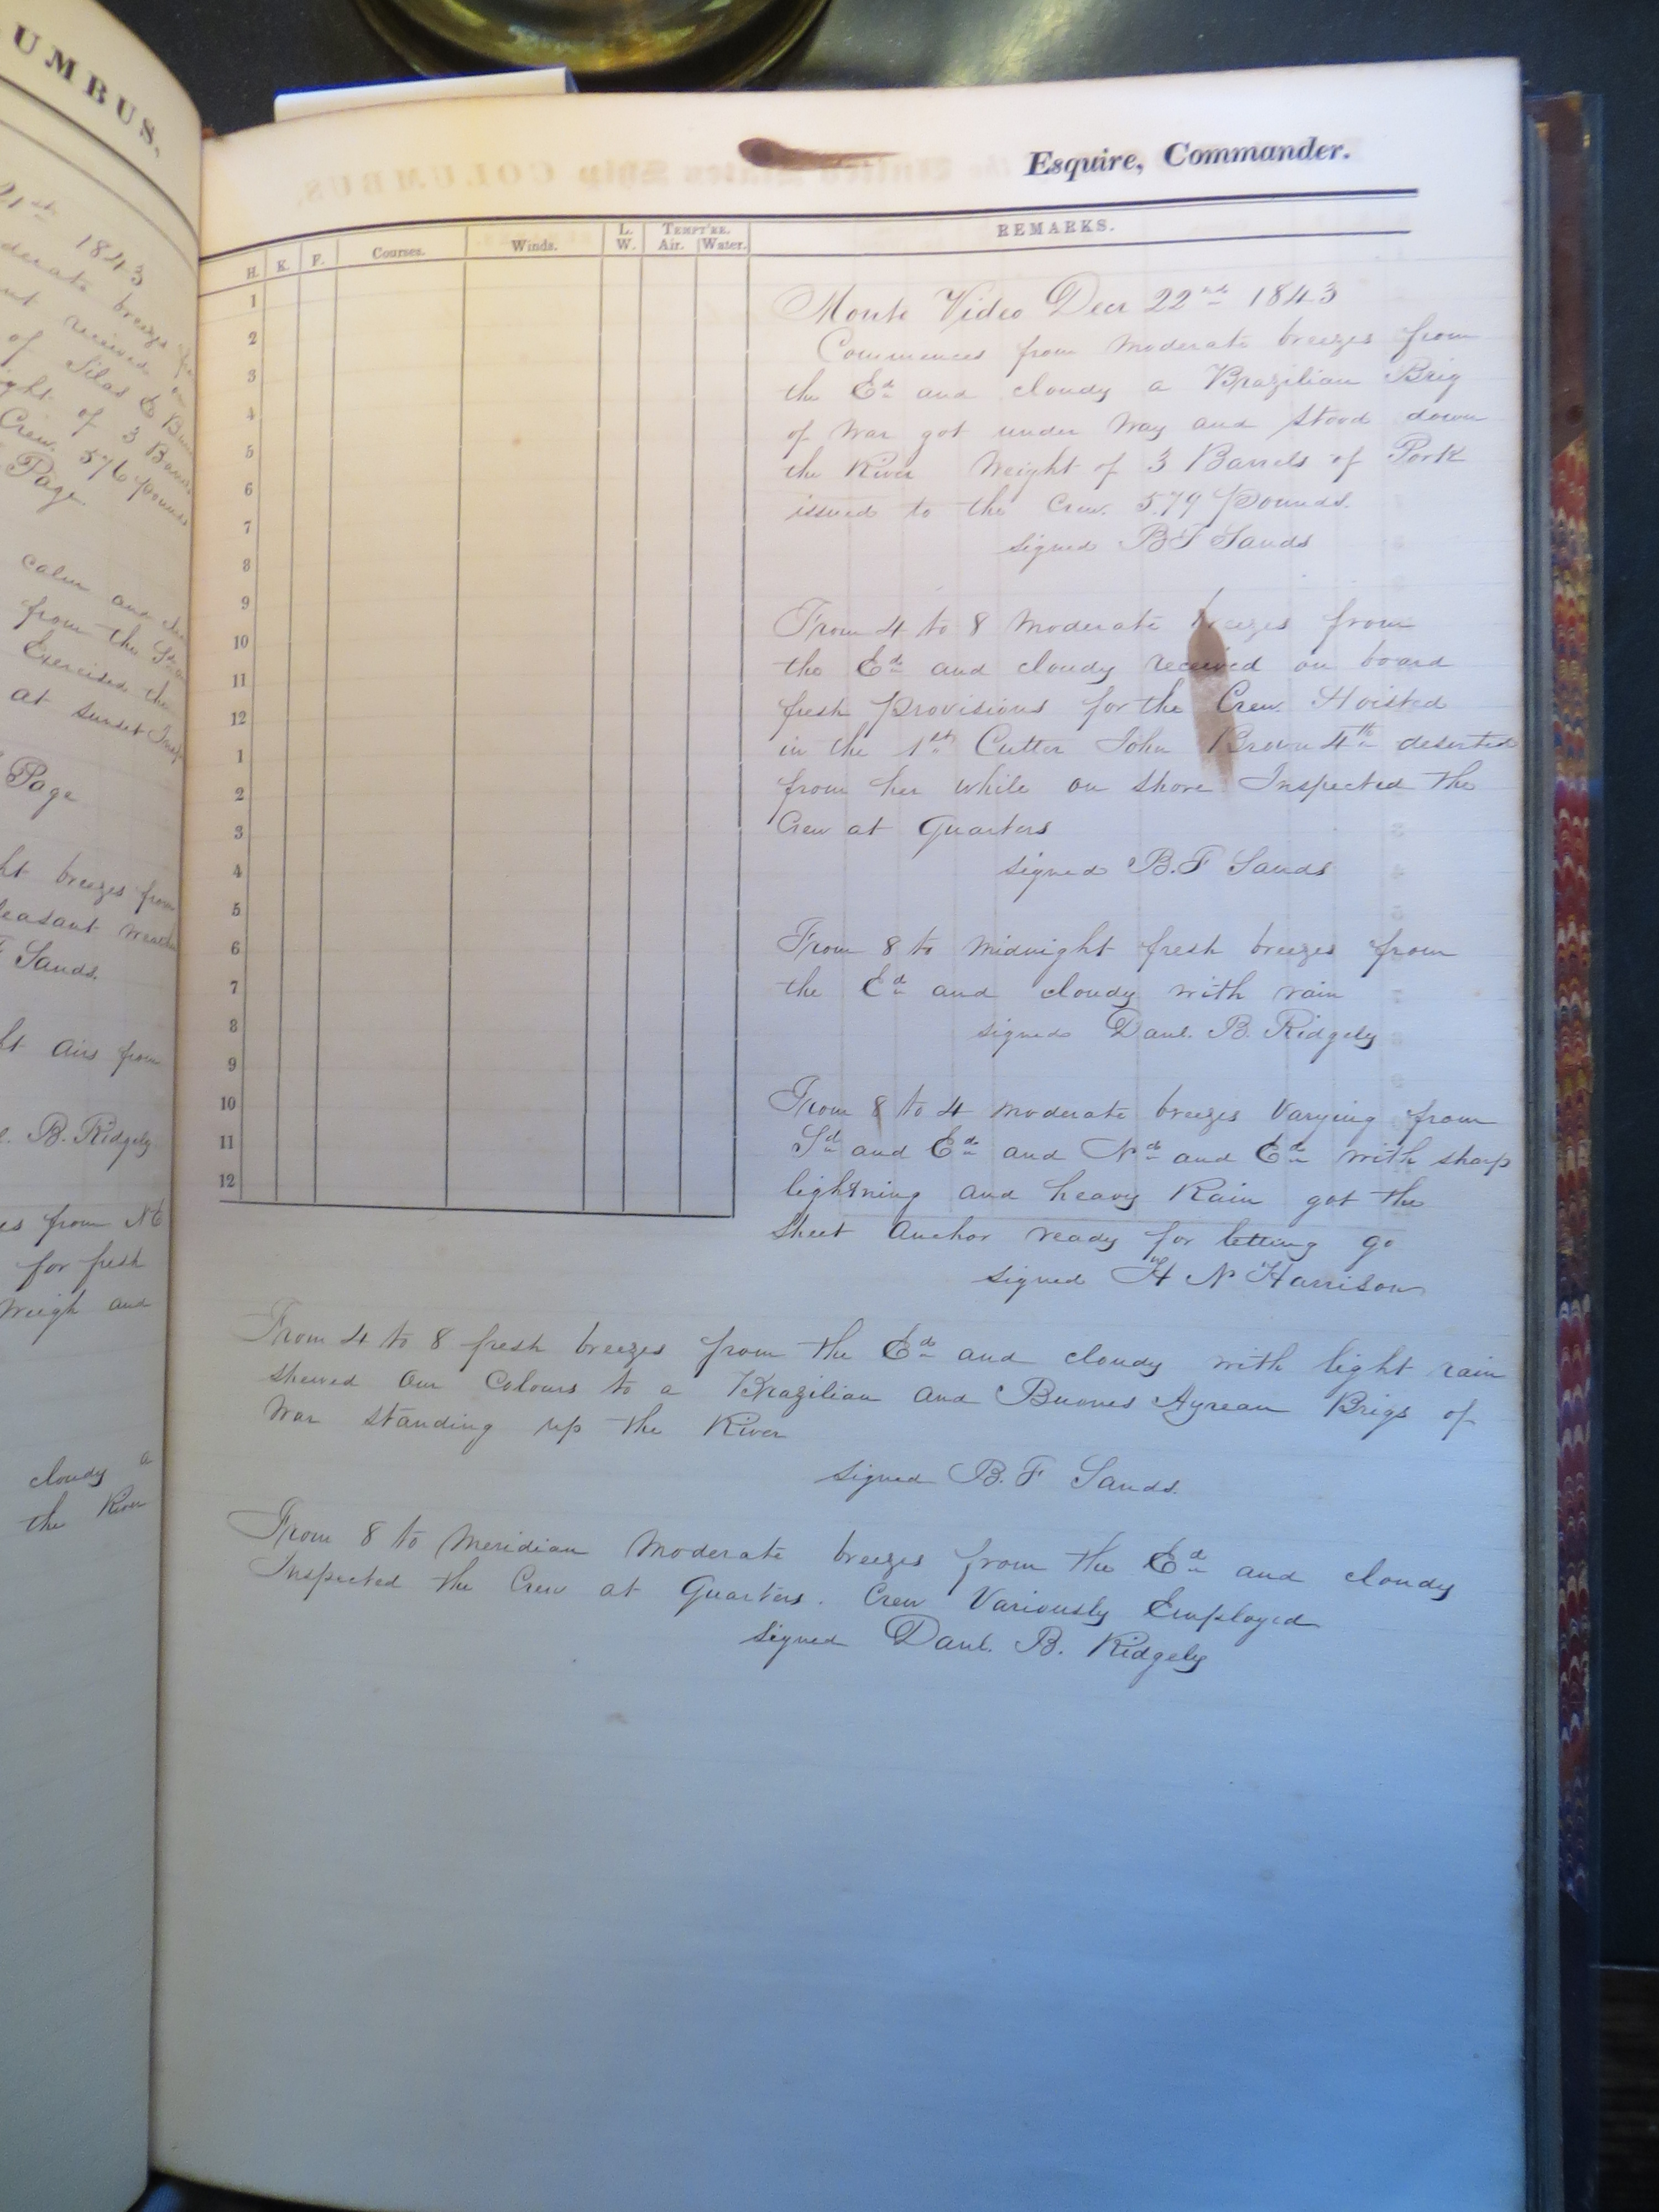 UMBUS.
21st 1843
derate breezes
received on
of Silas E
ght of 3 Barrels
Crew. 576 pounds
Page.
calm and
from the Sd
Exercised the
at sunset
Page
ht breezes from
leasant weather
F Sands.
ht airs from
l. B. Ridgely
es from NE
for fresh
weigh and
cloudy a
the River
Esquire, Commander.
H. K. F. Courses. Winds. L. W. TEMPT'RE. Air. Water. REMARKS.
1
2
3
4
5
6
7
8
9
10
11
12
1
2
3
4
5
6
7
8
9
10
11
12
Monte Video Decr 22nd 1843
Commences from moderate breezes from
the Ed and cloudy a Brazilian Brig
of War got under way and stood down
the River Weight of 3 Barrels of Pork
issued to the Crew. 579 Pounds.
signed B F Sands
From 4 to 8 moderate breezes from
the Ed and cloudy received on board
fresh provisions for the Crew. Hoisted
in the 1st Cutter John Brown 4th deserted
from her while on shore. Inspected the
Crew at Quarters
signed B. F Sands
From 8 to midnight fresh breezes from
the Ed and cloudy with rain
signed Danl. B. Ridgely
From 8 to 4 moderate breezes Varying from
Sd and Ed and Nd and Ed with sharp
lightning and heavy Rain got the
sheet anchor ready for letting go
signed H N Harrison
From 4 to 8 fresh breezes from the Ed and cloudy with light rain
shewed our Colours to a Brazilian and Buones Ayrean Brigs of
War standing up the River
signed B. F Sands.
From 8 to Meridian Moderate breezes from the Ed and cloudy
Inspected the Crew at Quarters. Crew Variously Employed
signed Danl. B. Ridgely